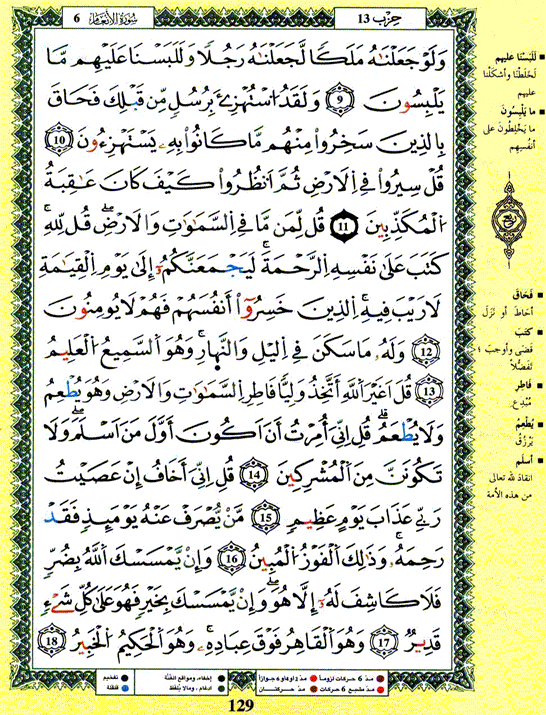 سُورَةُ الأَنْعَامِ 6
حِزْب 13
وَلَوْ جَعَلْنَٰهُ مَلَكاً لَّجَعَلْنَٰهُ رَجُلاً وَلَلَبَسْنَا عَلَيْهِم مَّا
يَلْبِسُونَ 9 وَلَقَدُ اُسْتُهْزِئَ بِرُسُلٍ مِّن قَبْلِكَ فَحَاقَ
بِالذِينَ سَخِرُواْ مِنْهُم مَّا كَانُواْ بِهِۦ يَسْتَهْزِءُونَ 10
قُلْ سِيرُواْ فِي اِلَارْضِ ثُمَّ اَنظُرُواْ كَيْفَ كَانَ عَٰقِبَةُ
اُلْمُكَذِّبِينَ 11 قُل لِّمَن مَّا فِي اِلسَّمَٰوَٰتِ وَالَارْضِ قُل لِّلهِ
كَتَبَ عَلَىٰ نَفْسِهِ اِلرَّحْمَةَ لَيَجْمَعَنَّكُمُۥٓ إِلَىٰ يَوْمِ اِلْقِيَٰمَةِ
لَا رَيْبَ فِيهِ اِلذِينَ خَسِرُوٓاْ أَنفُسَهُمْ فَهُمْ لَا يُومِنُونَ
12 وَلَهُۥ مَا سَكَنَ فِي اِليْلِ وَالنَّهِارِ وَهُوَ السَّمِيعُ الْعَلِيمُ
13 قُلَ اَغَيْرَ اَللَّهِ أَتَّخِذُ وَلِيّاً فَاطِرِ اِلسَّمَٰوَٰتِ وَالَارْضِ وَهُوَ يُطْعِمُ
وَلَا يُطْعَمُ قُلِ اِنِّيَ أُمِرْتُ أَنَ اَكُونَ أَوَّلَ مَنَ اَسْلَمَ وَلَا
تَكُونَنَّ مِنَ اَلْمُشْرِكِينَ 14 قُلِ اِنِّيَ أَخَافُ إِنْ عَصَيْتُ
رَبِّي عَذَابَ يَوْمٍ عَظِيمٍ 15 مَّنْ يُّصْرَفْ عَنْهُ يَوْمَئِذٍ فَقَدْ
رَحِمَهُۥ وَذَٰلِكَ اَلْفَوْزُ الْمُبِينُ 16 وَإِنْ يَّمْسَسْكَ اَللَّهُ بِضُرٍّ
فَلَا كَاشِفَ لَهُۥٓ إِلَّا هُوَ وَإِنْ يَّمْسَسْكَ بِخَيْرٍ فَهُوَ عَلَىٰ كُلِّ شَےْءٍ
قَدِيرٌ 17 وَهُوَ اَلْقَاهِرُ فَوْقَ عِبَادِهِۦ وَهُوَ اَلْحَكِيمُ الْخَبِيرُ 18
لَلَبَسْنَا عليهم
لَخَلَطْنَا وأشكَلْنا
عليهم
ما يَلْبِسُونَ
ما يَخْلِطُونَ على
أنفُسِهِم
ربع
فَحَاقَ
أحَاطَ أو نَزَلَ
كَتَبَ
قَضى وأوجبَ ؛
تفضّلاً
فَاطِرِ
مُبْدِعِ
يُطْعِمُ
يَرْزُقُ
أسلَم
انقادَ لله تعالى
من هذه الأمة
مدّ 6 حركات لزوماً
مدّ 2 أو 4 أو 6 جوازاً
إخفاء، ومواقع الغُنَّة
تفخيم
مدّ مشبع 6 حركات
مدّ حركتان
ادغام، وما لا يُلفظ
قلقلة
129